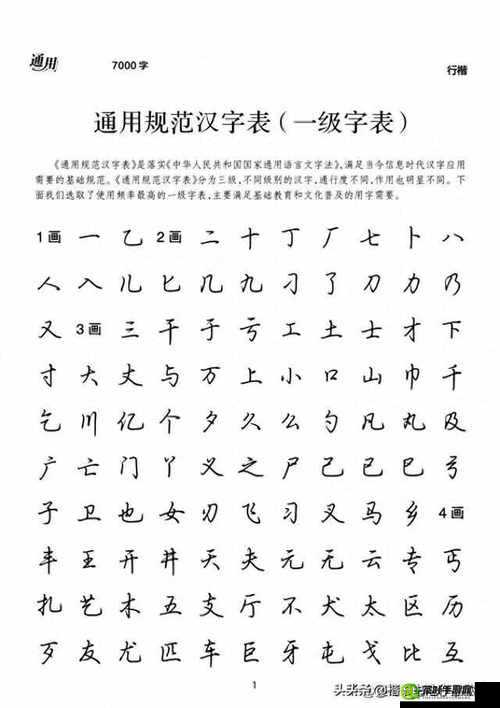 通用 7000 字 行楷
通用规范汉字表（一级字表）
《通用规范汉字表》是落实《中华人民共和国国家通用语言文字法》，满足当今信息时代汉字应用
需要的基础规范。《通用规范汉字表》分为三级，不同级别的汉字，通行度不同，作用也明显不同。下
面我们选取了使用频率最高的一级字表，主要满足基础教育和文化普及的用字需要。
1画 一 乙 2画 二 十 丁 厂 七 卜 八
人 入 儿 匕 几 九 刁 了 刀 力 乃
又 3画 三 干 于 亏 工 土 士 才 下
寸 大 丈 与 万 上 小 口 山 巾 千
乞 川 亿 个 夕 久 么 勺 凡 丸 及
广 亡 门 丫 义 之 尸 己 已 巳 弓
子 卫 也 女 刃 飞 习 叉 马 乡 4画
丰 王 开 井 天 夫 元 无 云 专 丐
扎 艺 木 五 支 厅 不 犬 太 区 历
歹 友 尤 匹 车 巨 牙 屯 戈 比 互
1
头条 @楷